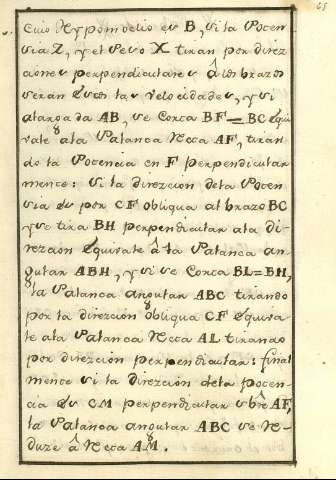 65
Cuio Hypomoclio es B, si la Potencia
Z, y el Peso X tiran por direz
ciones perpendiculares â los brazos
seran Ecos las velocidades, y si
alargada AB, se Corta BF=BC Equi
vale ala Palanca Recta AF, tiran
do la Potencia en F perpendicular
mente: si la direzcion dela Poten
cia es por CF obliqua al brazo BC
y se tira BH perpendicular ala di
rezcion Equivale â la Palanca an
gular ABH, y si se Corta BL=BH,
la Palanca angular ABC tirando
por la direzcion obliqua CF Equiva
le ala Palanca Recta AL tirando
por direzcion perpendicular: final
mente si la direzcion dela poten
cia es CM perpendicular sbre AF,
la Palanca angular ABC se Re
duze â Recta AM.